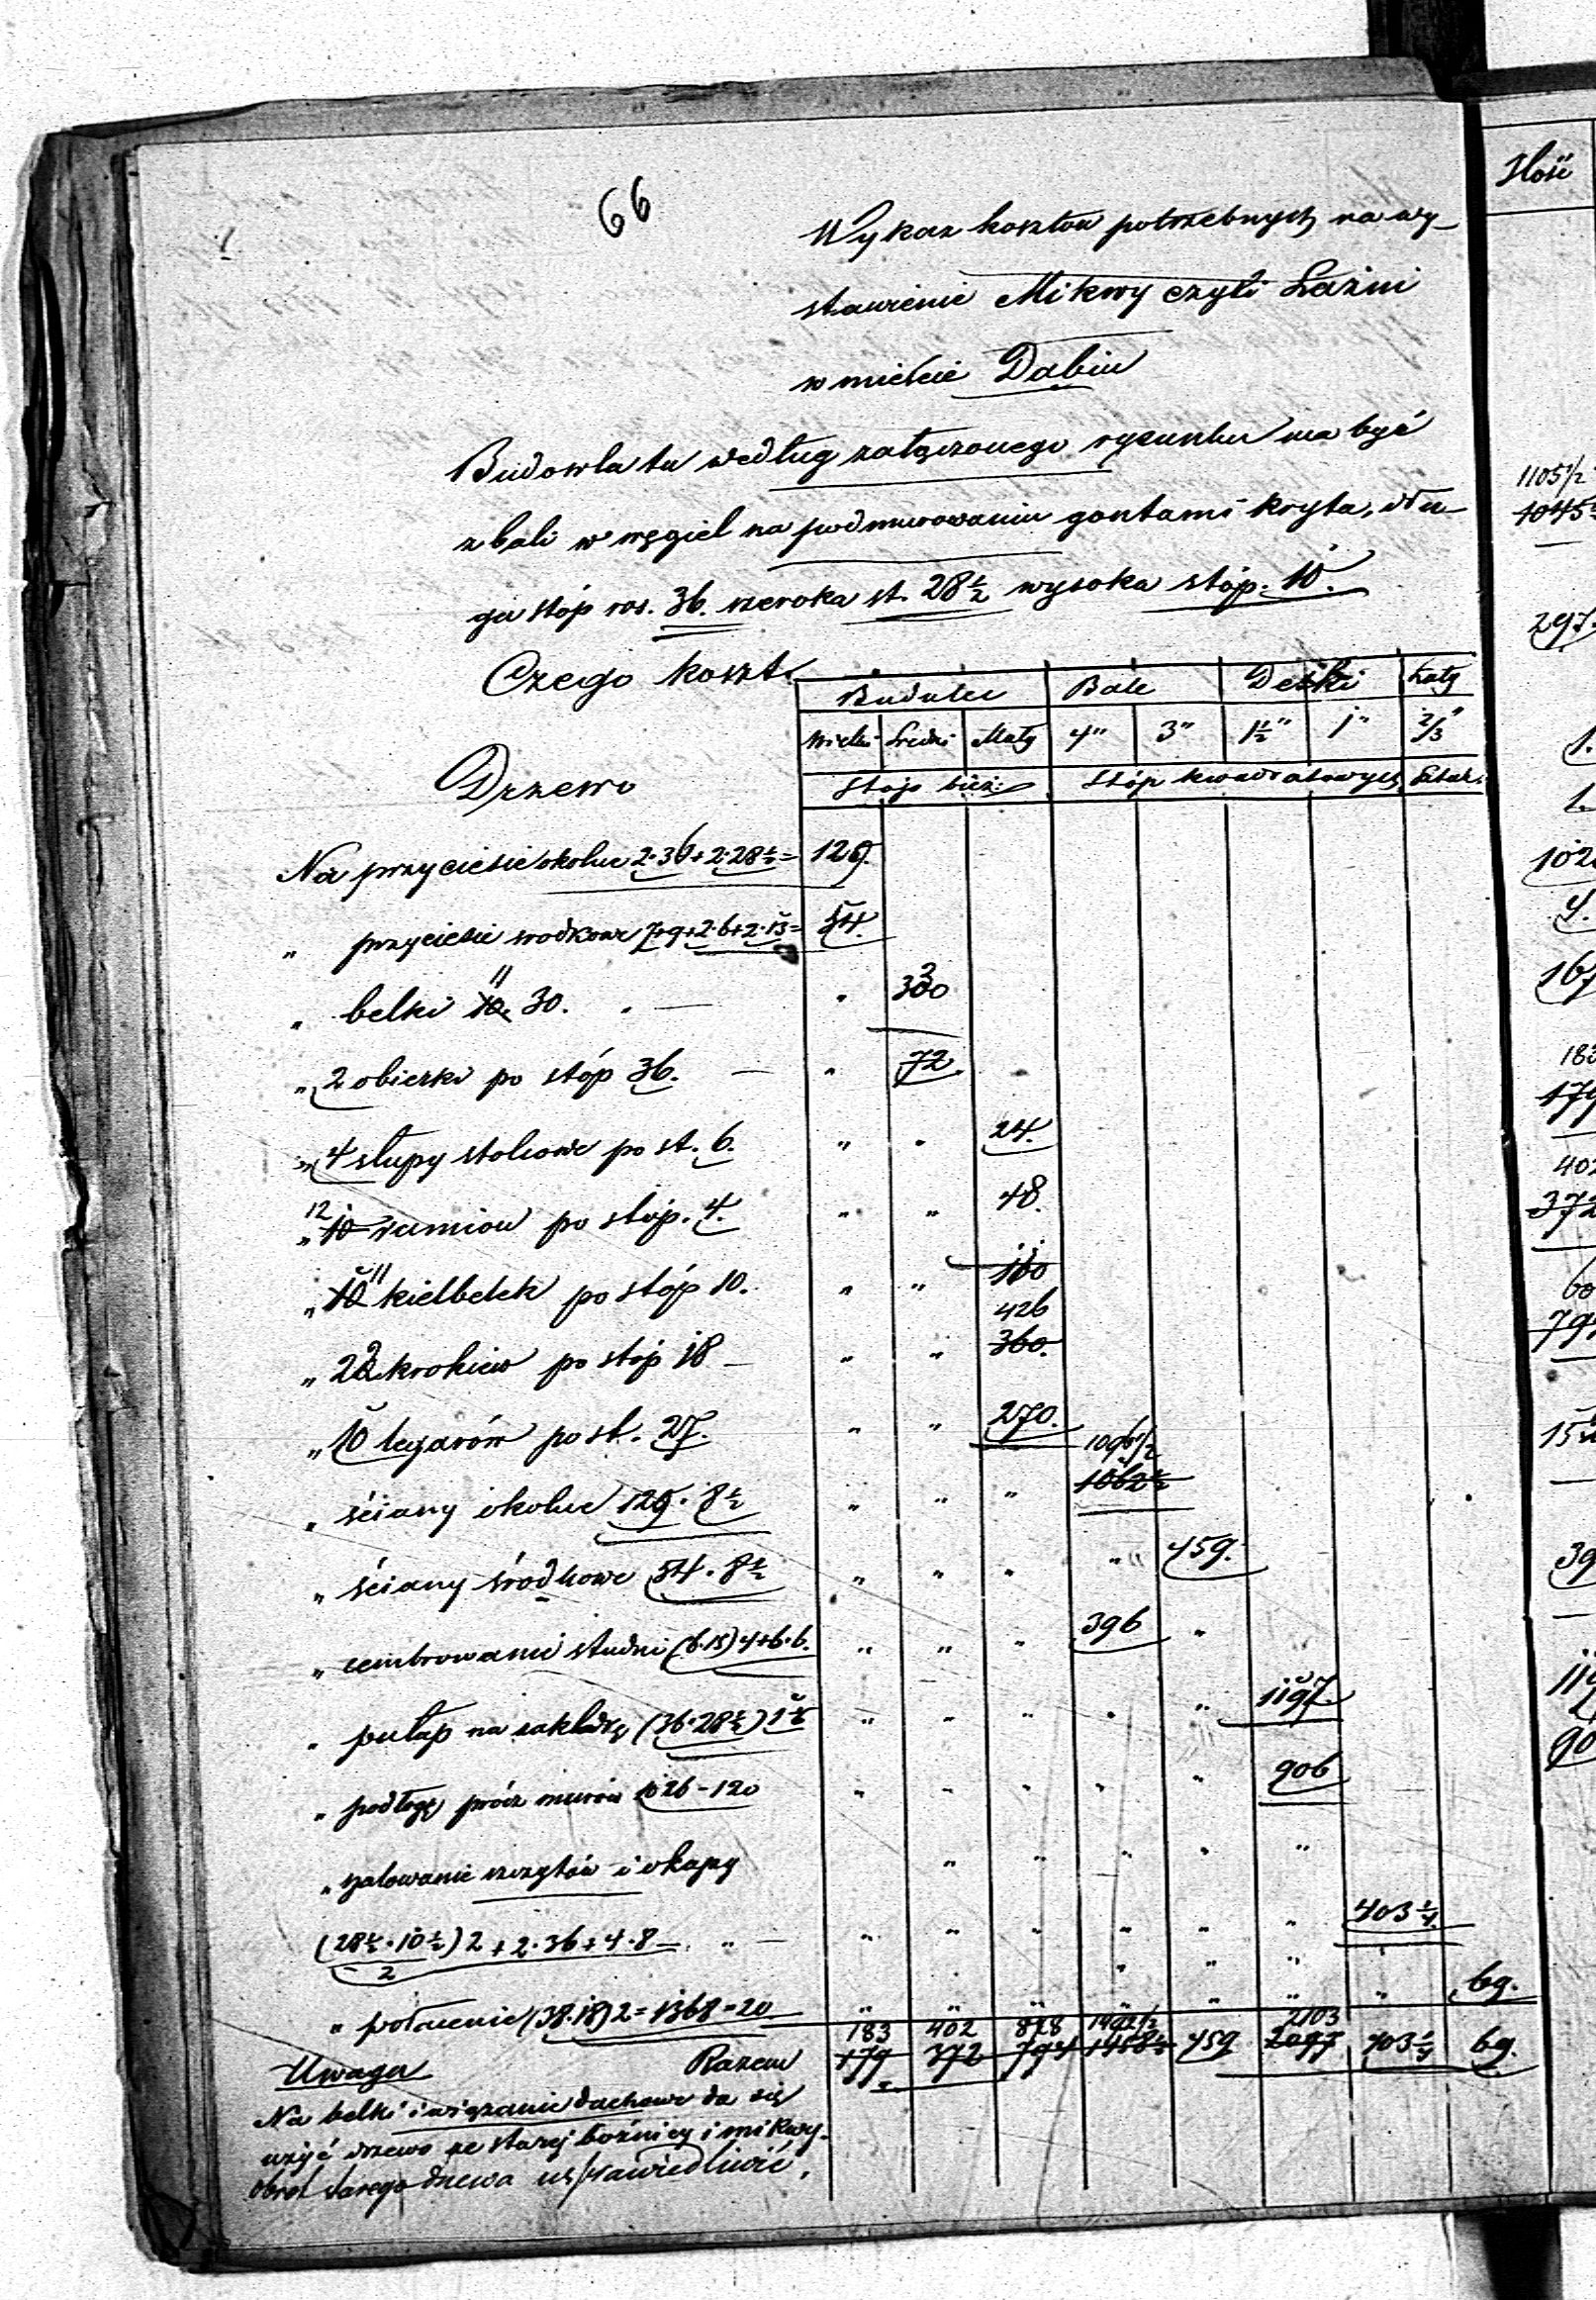 66
Wykaz kosztów potrzebnych na wy-
stawienie Mikwy czyli Łaźni
w mieście Dąbiu
Budowla ta według załączonego rysunku ma być
z bali w węgieł na podmurowaniu gontami kryta, dłu-
ga stóp ros. 36. szeroka st. 28½ wysoka stóp. 10.
Czego koszt.
Budulec Bale Deski Łaty
Wielki Średni Mały 4" 3" 1½" 1"
Drzewo
Stóp bież: Stóp kwadratowych Sztuk.
Na przyciesie okolne 2·36+2·28½= 129.
" przyciesie środkowe 7+9+2·6+2·13= 54.
" belki 11 10. 30. " 330
" 2 obierki po stóp 36. " 72.
" 4 słupy stolcowe po st. 6. " " 24.
" 12 10 ramion po stóp. 4. " " 48.
" 10 11 kielbelek po stóp 10. " "
" 22 krokiew po stóp 18 " " 426 360.
" 10 legarów po st. 27. " " 270.
" ściany okolne 129·8½ " " " 1096½ 1062½
" ściany środkowe 54·8½ " " " " 459.
" cembrowanie studni (6·15)4+6·6. " " " 396 "
" pułap na zakładkę (36·28½) " " " " " 1197
" podłogę prócz murów 1026-120 " " " " " 906
" szalowanie szczytów i okapy " " " " "
(28½·10½)2+2·36+4·8 " " " " " " 403¼
2
" połacenie (38·18)2=1368=20 " " " " " " " 69.
183 402 828 1492½ 2103
Uwaga Razem 179 372 794 1458½ 459 2097 403¼ 69.
Na belki i wiązanie dachowe da się
użyć drzewo ze starej bóżnicy i mikwy.
obrót starego drzewa usprawiedliwić.
Ilość
1105½
1045
297.
1.
1.
102
4.
167
183
179
402
372